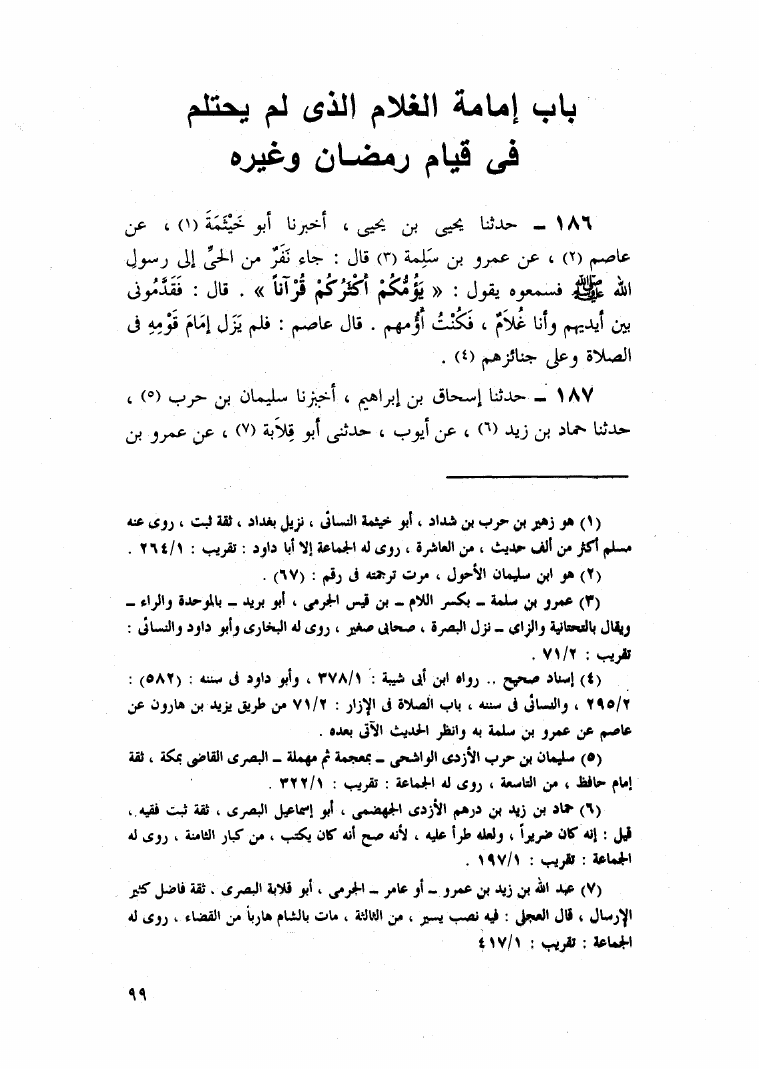 باب إمامة الغلام الذى لم يحتلم
فى قيام رمضان وغيره
١٨٦ ــ حدثنا يحيى بن يحيى ، أخبرنا أبو خَيْثَمَةَ (١) ، عن
عاصم (٢) ، عن عمرو بن سَلِمة (٣) قال : جاء نَفَرٌ من الحىِّ إلى رسولِ
الله ﷺ فسمعوه يقول : « يَؤُمُّكُمْ أَكْثَرُكُمْ قُرْآناً » . قال : فَقَدَّمُونى
بين أيديهم وأنا غُلاَمٌ ، فَكُنْتُ أَؤُمهم . قال عاصم : فلم يَزَل إمَامَ قَوْمِهِ فى
الصلاة وعلى جنائزهم (٤) .
١٨٧ ــ حدثنا إسحاق بن إبراهيم ، أخبرنا سليمان بن حرب (٥) ،
حدثنا حماد بن زيد (٦) ، عن أيوب ، حدثنى أبو قِلاَبة (٧) ، عن عمرو بن
(١) هو زهير بن حرب بن شداد ، أبو خيثمة النسائى ، نزيل بغداد ، ثقة ثبت ، روى عنه
مسلم أكثر من ألف حديث ، من العاشرة ، روى له الجماعة إلا أبا داود : تقريب : ٢٦٤/١ .
(٢) هو ابن سليمان الأحول ، مرت ترجمته فى رقم : (٦٧) .
(٣) عمرو بن سلمة ــ بكسر اللام ــ بن قيس الجرمى ، أبو بريد ــ بالموحدة والراء ــ
ويقال بالتحتانية والزاى ــ نزل البصرة ، صحابى صغير ، روى له البخارى وأبو داود والنسائى :
تقريب : ٧١/٢ .
(٤) إسناد صحيح .. رواه ابن أبى شيبة : ٣٧٨/١ ، وأبو داود فى سننه : (٥٨٢) :
٢٩٥/٢ ، والنسائى فى سننه ، باب الصلاة فى الإزار : ٧١/٢ من طريق يزيد بن هارون عن
عاصم عن عمرو بن سلمة به وانظر الحديث الآتى بعده .
(٥) سليمان بن حرب الأزدى الواشحى ــ بمعجمة ثم مهملة ــ البصرى القاضى بمكة ، ثقة
إمام حافظ ، من التاسعة ، روى له الجماعة : تقريب : ٣٢٢/١ .
(٦) حماد بن زيد بن درهم الأزدى الجهضمى ، أبو إسماعيل البصرى ، ثقة ثبت فقيه ،
قيل : إنه كان ضريراً ، ولعله طرأ عليه ، لأنه صح أنه كان يكتب ، من كبار الثامنة ، روى له
الجماعة : تقريب : ١٩٧/١ .
(٧) عبد الله بن زيد بن عمرو ــ أو عامر ــ الجرمى ، أبو قلابة البصرى ، ثقة فاضل كثير
الإرسال ، قال العجلى : فيه نصب يسير ، من الثالثة ، مات بالشام هارباً من القضاء ، روى له
الجماعة : تقريب : ٤١٧/١
٩٩